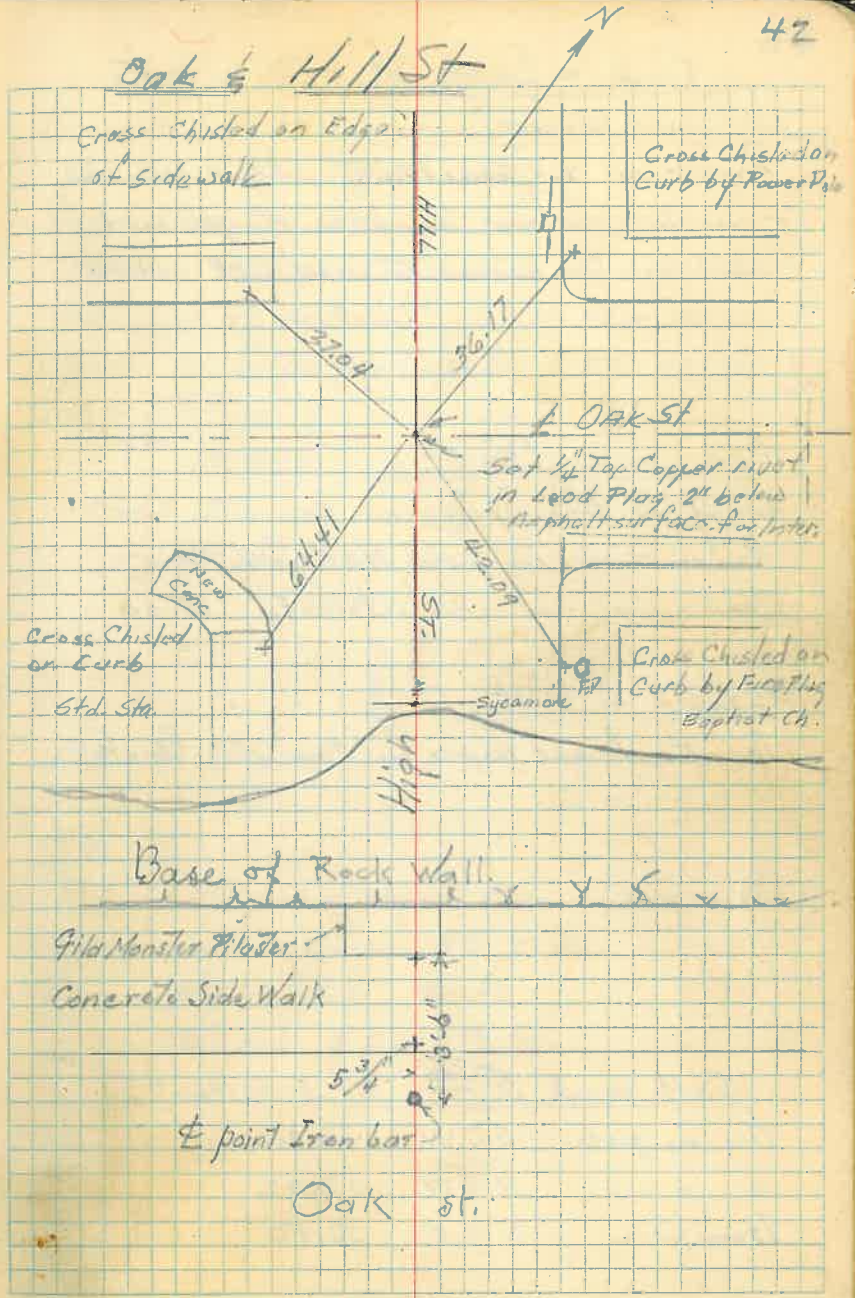 42
N
Oak & Hill St
Cross Chisled on Edge
of sidewalk
Cross Chisled on
Curb by Power
HILL
37.04
36.17
℄ OAK St
Set 1/4" Tap Copper rivet
in Lead Plug 2" below
Asphalt surface for Inter.
64.41
42.09
New
Conc
ST.
Cross Chisled
on Curb
Std. Sta.
FP
Cross Chisled on
Curb by Fire Plug
Baptist Ch.
Sycamore
High
Base of Rock Wall.
Gila Monster Pilaster
Concrete Side Walk
5 3/4"
℄ point Iron bar
Oak st.